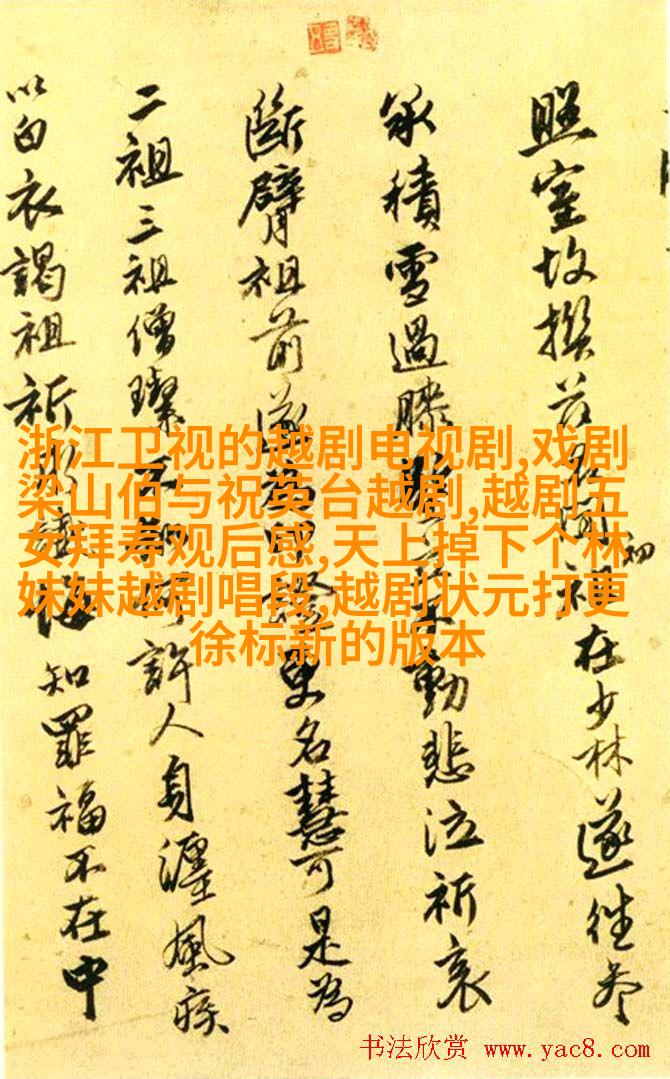 照室故撰初祖在少林遂往參
承積雪過膝動悲泣祈哀
斷臂祖前更名慧可是為
二祖三祖僧璨不許人身纏風疾
以白衣謁祖祈知罪福不在中
浙江卫视的越剧电视剧,戏剧
梁山伯与祝英台越剧,越剧五
女拜寿观后感,天上掉下个林
妹妹越剧唱段,越剧状元打更
徐标新的版本
书法欣赏 www.yac8.com